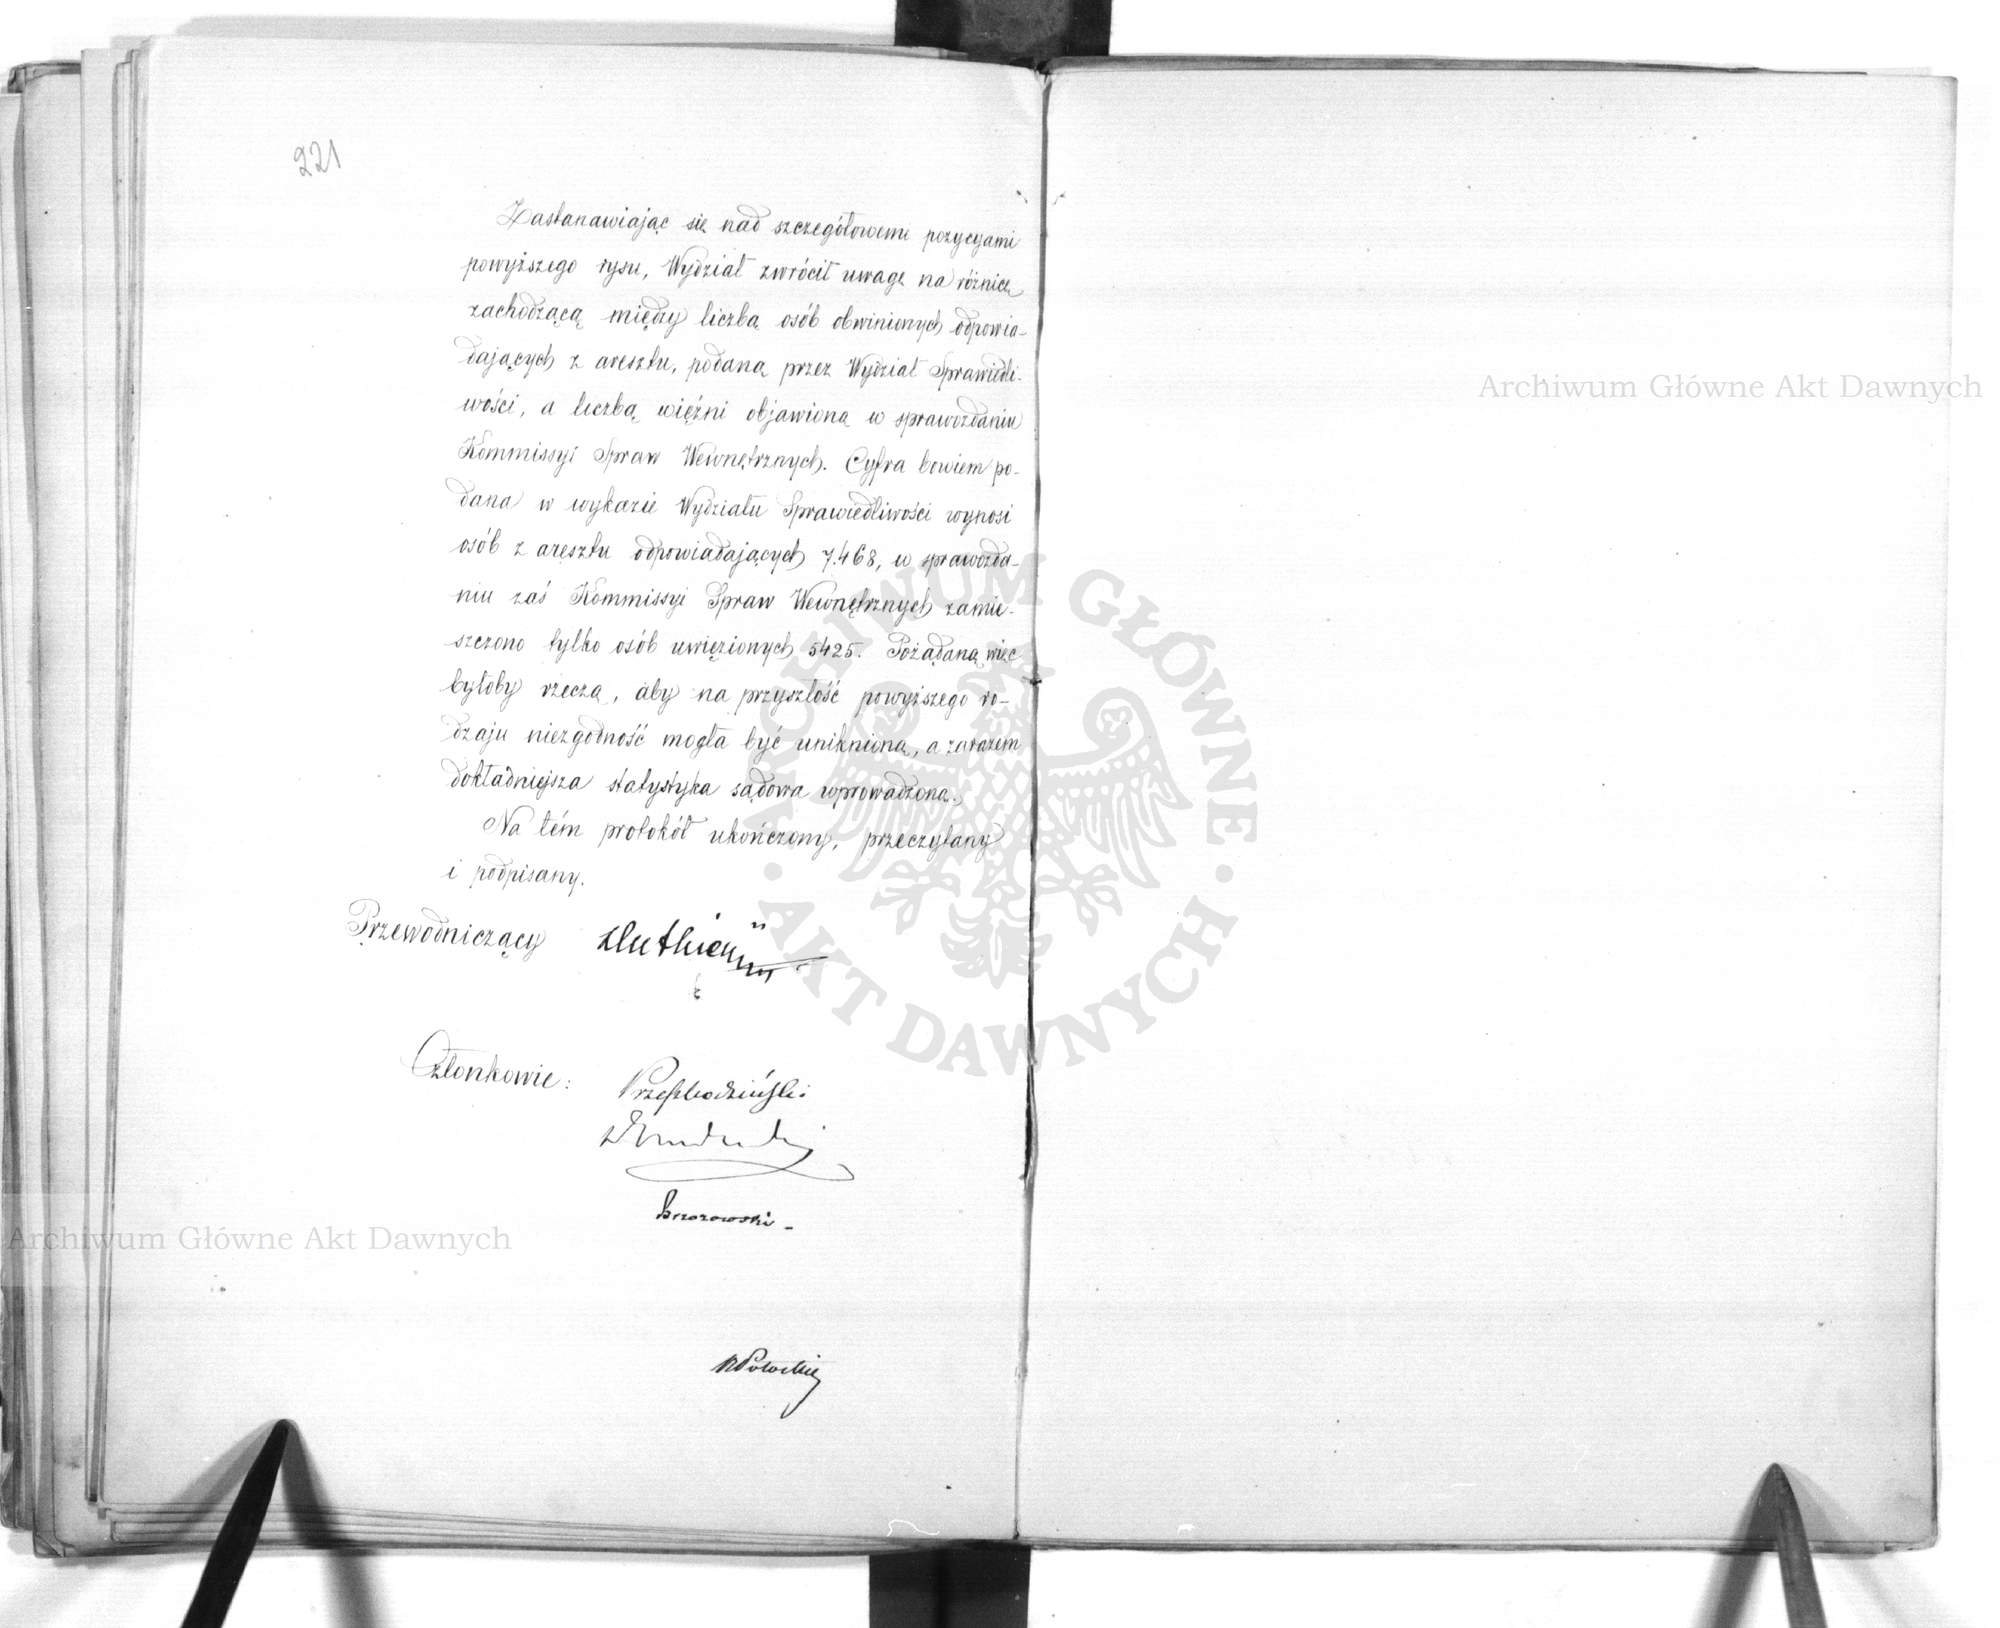 221
Zastanawiając się nad szczegółowemi pozycyami
powyższego rysu, Wydział zwrócił uwagę na różnicę
zachodzącą między liczbą osób obwinionych odpowia-
dających z aresztu, podaną przez Wydział Sprawiedli-
wości, a liczbą więźni objawioną w sprawozdaniu
Kommissyi Spraw Wewnętrznych. Cyfra bowiem po-
dana w wykazie Wydziału Sprawiedliwości wynosi
osób z aresztu odpowiadających 7.468, w sprawozda-
niu zaś Kommissyi Spraw Wewnętrznych zamie-
szczono tylko osób uwięzionych 5425. Pożądaną więc
byłoby rzeczą, aby na przyszłość powyższego ro-
dzaju niezgodność mogła być uniknioną, a zarazem
dokładniejsza statystyka sądowa wprowadzoną.
Na tém protokół ukończony, przeczytany
i podpisany.
Przewodniczący
Członkowie:
Brzozowski
APotocki
Archiwum Główne Akt Dawnych
Archiwum Główne Akt Dawnych
ARCHIWUM GŁÓWNE
AKT DAWNYCH